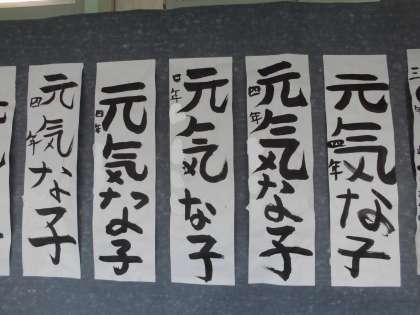 元気な子
四年
元気な子
四年
元気な子
四年
元気な子
四年
元気な子
四年